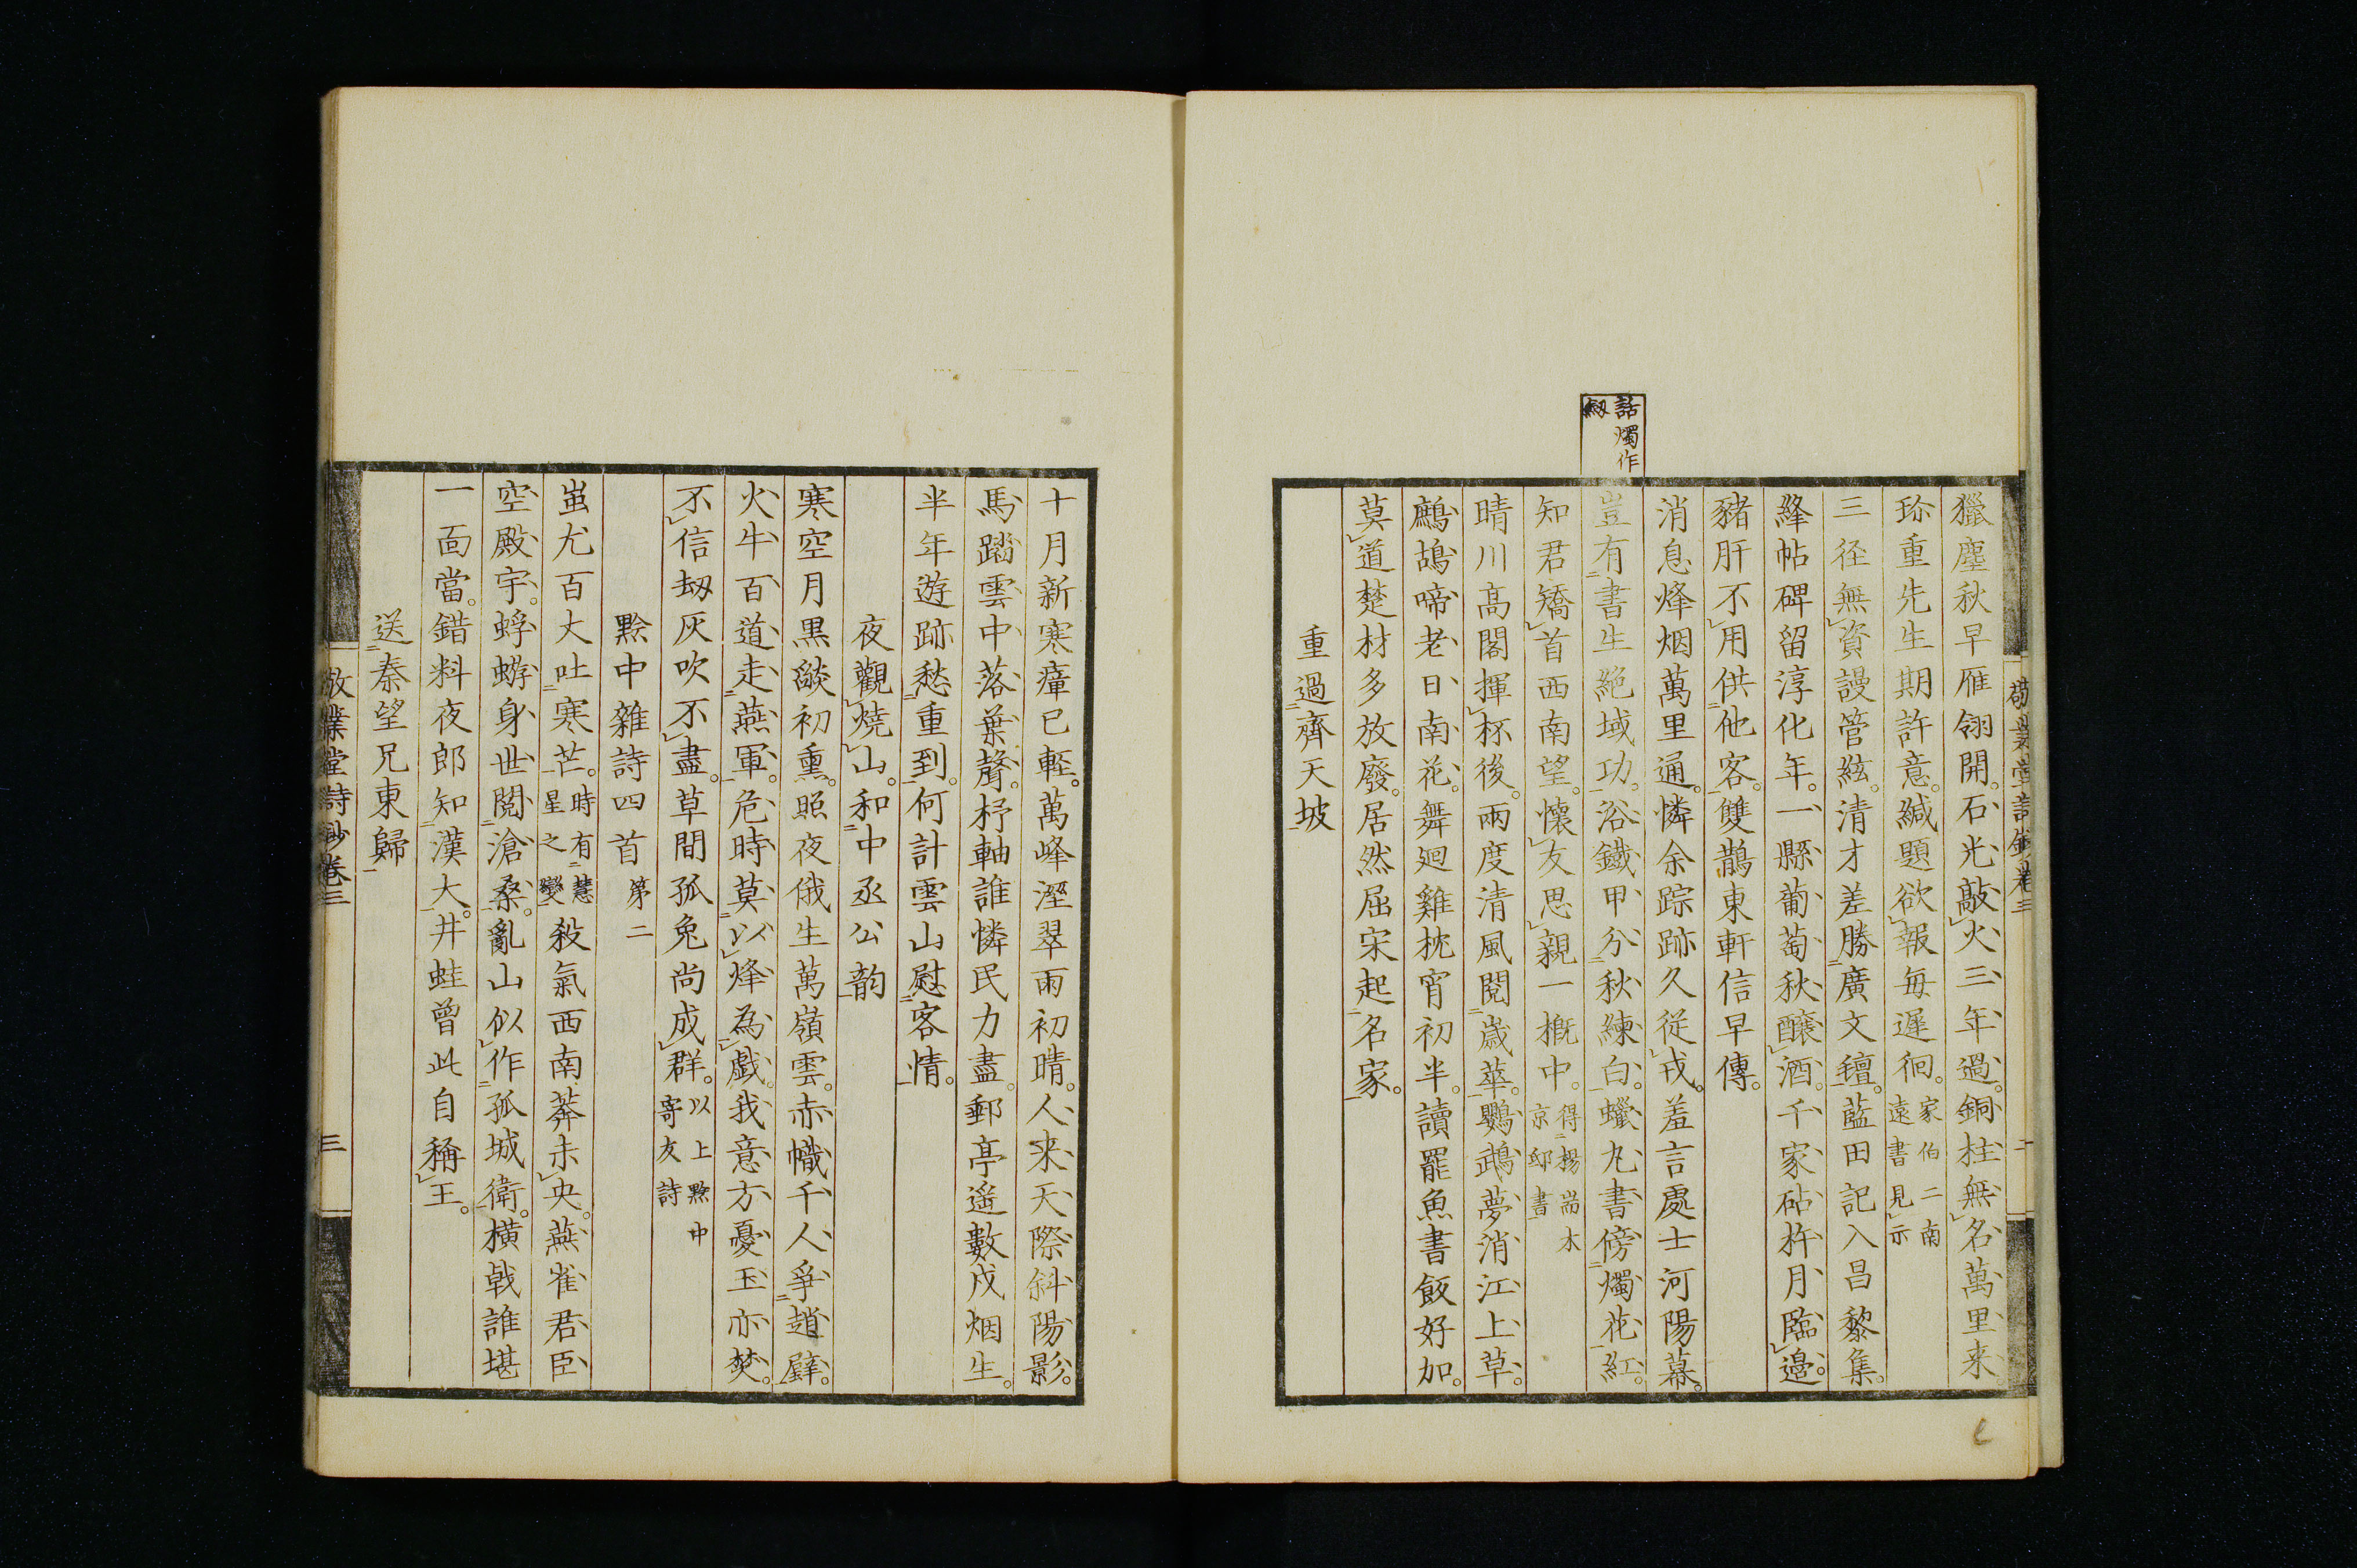 獵塵秋早雁翎開石火敲火三年過銅柱無名萬里来
珎重先生期許意緘題欲報毎遲徊家伯二南
遠書見示
三径無資謾管絃清才差勝廣文氊藍田記入昌黎集
絳帖碑留淳化年一縣葡萄秋釀酒千家砧杵月臨邉
豬肝不用供他客雙鵲東軒信早傳
消息烽烟萬里通憐余踪跡久従戎羞言處士河陽幕
豈有書生絶域功浴鐵甲分秋練白蠟丸書傍燭花紅
話燭作
劔
知君矯首西南望懷友思親一概中得楊耑木
京邸書
晴川髙閣揮杯後兩度清風閲歳華鸚鵡夢消江上草
鷓鴣啼老日南花舞廻雞枕宵初半讀罷魚書飯好加
莫道楚材多放廢居然屈宋起名家
重過齊天坡
敬業堂詩鈔巻三
二
十月新寒瘴已輕萬峰溼翠雨初晴人来天際斜陽影
馬踏雲中落葉聲杼軸誰憐民力盡郵亭遥數戍烟生
半年遊跡愁重到何計雲山慰客情
夜觀燒山和中丞公韵
寒空月黒燄初熏照夜俄生萬嶺雲赤幟千人爭趙壁
火牛百道走燕軍危時莫以烽為戲我意方憂玉亦焚
不信刼灰吹不盡草間孤兔尚成群以上黔中
寄友詩
黔中雜詩四首第二
蚩尤百丈吐寒芒時有慧
星之變殺氣西南莽未央燕雀君臣
空殿宇蜉蝣身世閲滄桑亂山似作孤城衛横戟誰堪
一面當錯料夜郎知漢大井蛙曾此自稱王
送秦望兄東歸
敬業堂詩鈔巻三
三